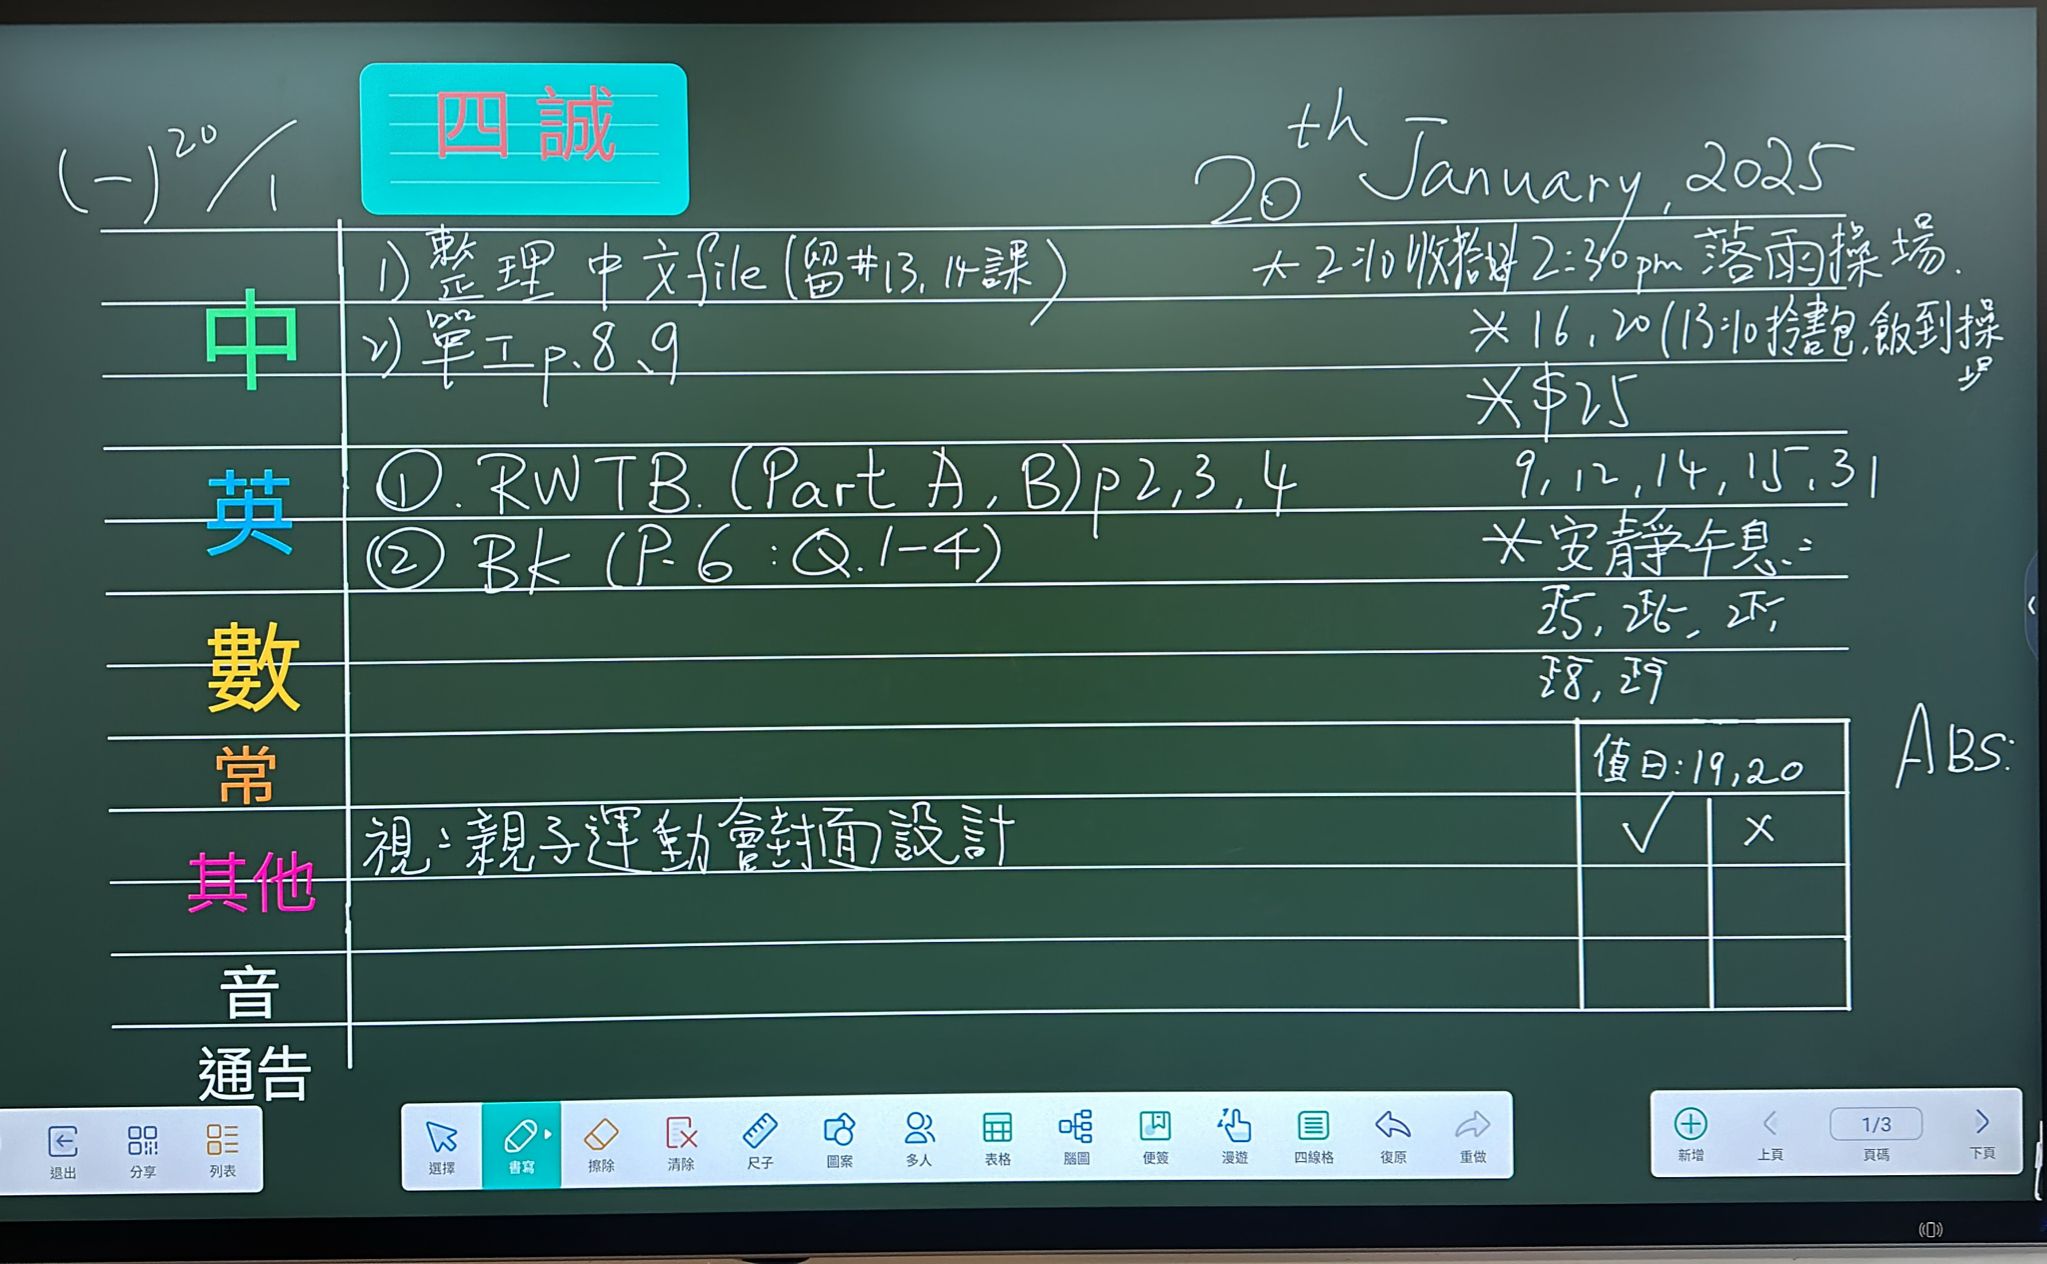 四誠
(一) 20/1
20th January, 2025
中
1) 整理中文file (留#13, 14課)
2) 單工p.8、9
* 2:10收拾好 2:30pm 落雨操場.
* 16, 20 (13:10拎書包, 飯到操場
* $25
英
①. RWTB. (Part A, B) p2,3,4
② BK (P.6 : Q.1-4)
9, 12, 14, 15, 31
* 安靜午息:
數
常
其他
視:親子運動會封面設計
值日:19,20
✓ x
ABS:
音
通告
退出 分享 列表
選擇 書寫 擦除 清除 尺子 圖案 多人 表格 腦圖 便簽 漫遊 四線格 復原 重做
新增 上頁 1/3 頁碼 下頁